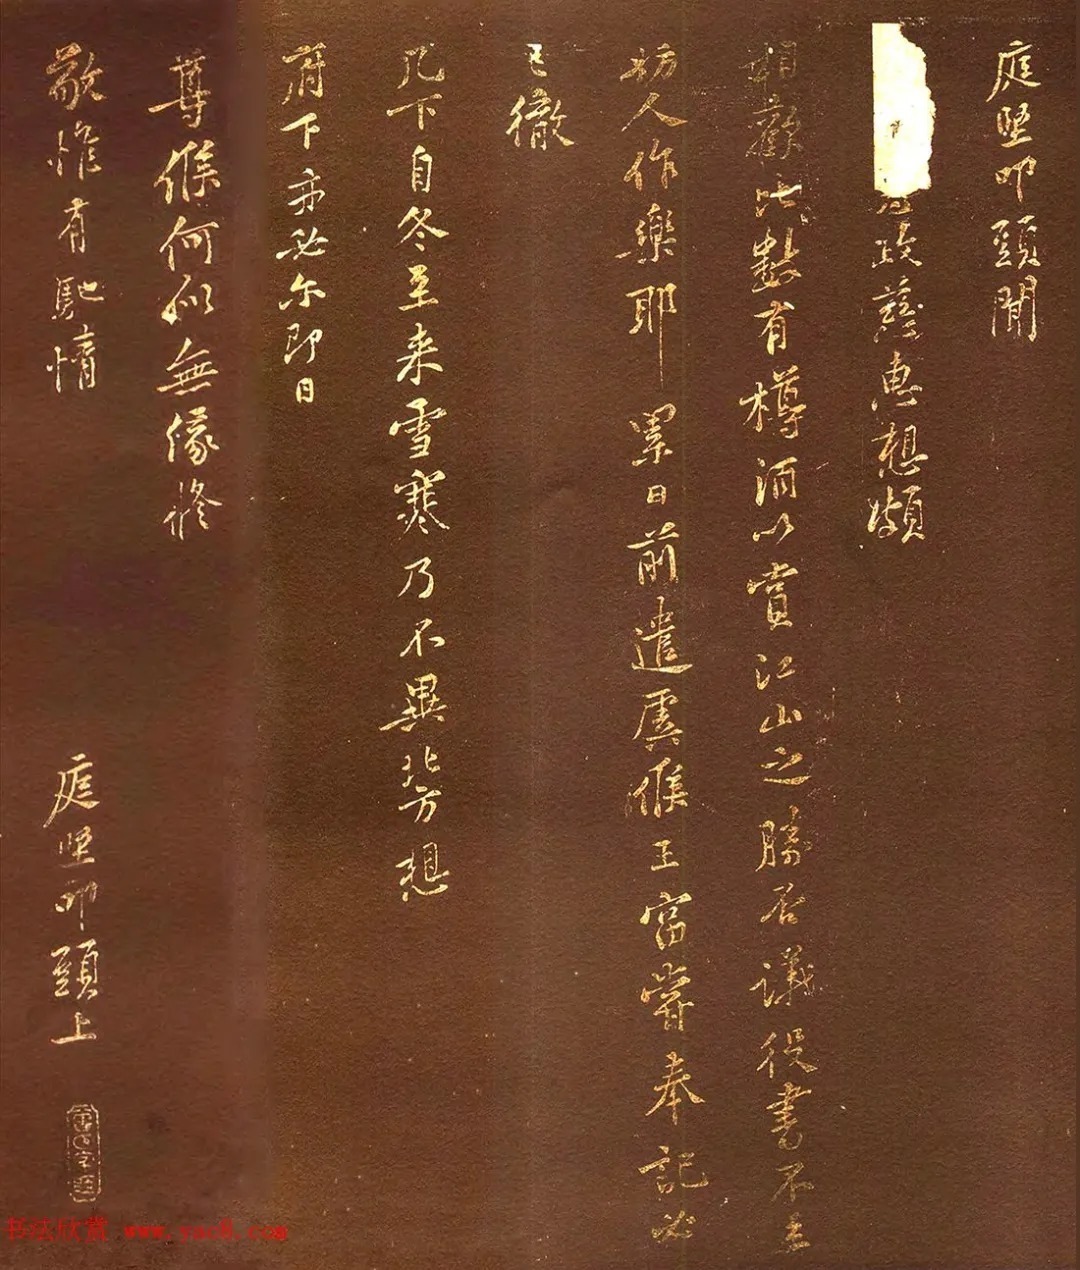 庭堅叩頭聞
政慈惠想頗
相歡比數有樽酒以賞江山之勝否議役書不至
妨人作樂耶累日前遣虞候王富嘗奉記必
已徹
几下自冬至来雪寒乃不異北方想
府下亦必尔即日
尊候何似無緣修
敬惟有馳情
庭堅叩頭上
书法欣赏 www.yac8.com